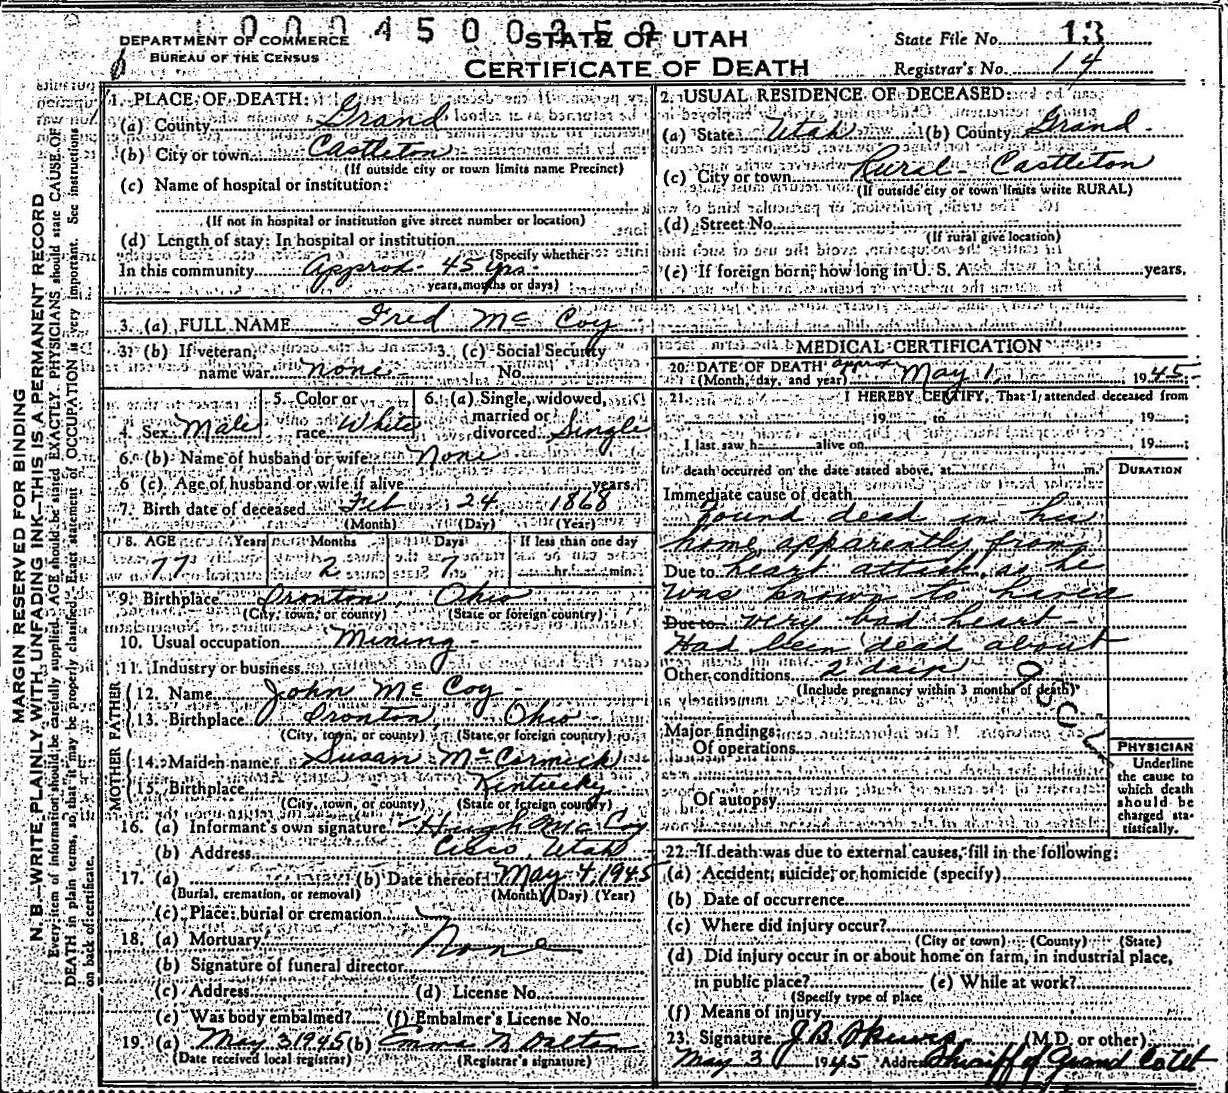 00004500359
DEPARTMENT OF COMMERCE
BUREAU OF THE CENSUS
STATE OF UTAH
CERTIFICATE OF DEATH
State File No. 13
Registrar's No. 14
MARGIN RESERVED FOR BINDING
N. B.—WRITE PLAINLY, WITH UNFADING INK—THIS IS A PERMANENT RECORD
Every item of information should be carefully supplied. AGE should be stated EXACTLY. PHYSICIANS should state CAUSE OF
DEATH in plain terms, so that it may be properly classified. Exact statement of OCCUPATION is very important. See instructions
on back of certificate.
1. PLACE OF DEATH:
(a) County Grand
(b) City or town Castleton
(If outside city or town limits name Precinct)
(c) Name of hospital or institution:
(If not in hospital or institution give street number or location)
(d) Length of stay: In hospital or institution
(Specify whether
In this community Approx. 45 yrs.
years, months or days)
2. USUAL RESIDENCE OF DECEASED:
(a) State Utah (b) County Grand
(c) City or town Rural - Castleton
(If outside city or town limits write RURAL)
(d) Street No.
(If rural give location)
(e) If foreign born, how long in U. S. A. years.
3. (a) FULL NAME Fred Mc Coy
3. (b) If veteran, name war none
3. (c) Social Security No.
4. Sex Male
5. Color or race White
6. (a) Single, widowed, married or divorced Single
6. (b) Name of husband or wife None
6 (c) Age of husband or wife if alive years.
7. Birth date of deceased Feb 24 1868
(Month) (Day) (Year)
8. AGE Years Months Days If less than one day
77 2 7 hr. min.
9. Birthplace Ironton, Ohio
(City, town, or county) (State or foreign country)
10. Usual occupation Mining -
11. Industry or business
FATHER
12. Name John Mc Coy -
13. Birthplace Ironton, Ohio -
(City, town, or county) (State or foreign country)
MOTHER
14. Maiden name Susan McCormick
15. Birthplace Kentucky
(City, town, or county) (State or foreign country)
16. (a) Informant's own signature Hugh Mc Coy
(b) Address Cisco, Utah
17. (a) (b) Date thereof May 4, 1945
(Burial, cremation, or removal) (Month) (Day) (Year)
(c) Place: burial or cremation
18. (a) Mortuary None
(b) Signature of funeral director
(c) Address (d) License No.
(e) Was body embalmed? (f) Embalmer's License No.
19. (a) May 3 1945 (b) Emma N. Dalton
(Date received local registrar) (Registrar's signature)
MEDICAL CERTIFICATION
20. DATE OF DEATH approx May 1, 1945
(Month, day, and year)
21. I HEREBY CERTIFY, That I attended deceased from
19 to 19 ;
I last saw h alive on 19 ;
death occurred on the date stated above, at m.
DURATION
Immediate cause of death
found dead in his
home apparently from
Due to heart attack, as he
was known to have a
Due to very bad heart -
Had been dead about
Other conditions 2 days
(Include pregnancy within 3 months of death)
Major findings:
Of operations
Of autopsy
PHYSICIAN
Underline
the cause to
which death
should be
charged sta-
tistically.
22. If death was due to external causes, fill in the following:
(a) Accident, suicide, or homicide (specify)
(b) Date of occurrence
(c) Where did injury occur?
(City or town) (County) (State)
(d) Did injury occur in or about home on farm, in industrial place,
in public place? (e) While at work?
(Specify type of place
(f) Means of injury
23. Signature J. B. (M.D. or other)
May 3 1945 Address Sheriff of Grand Co Ut